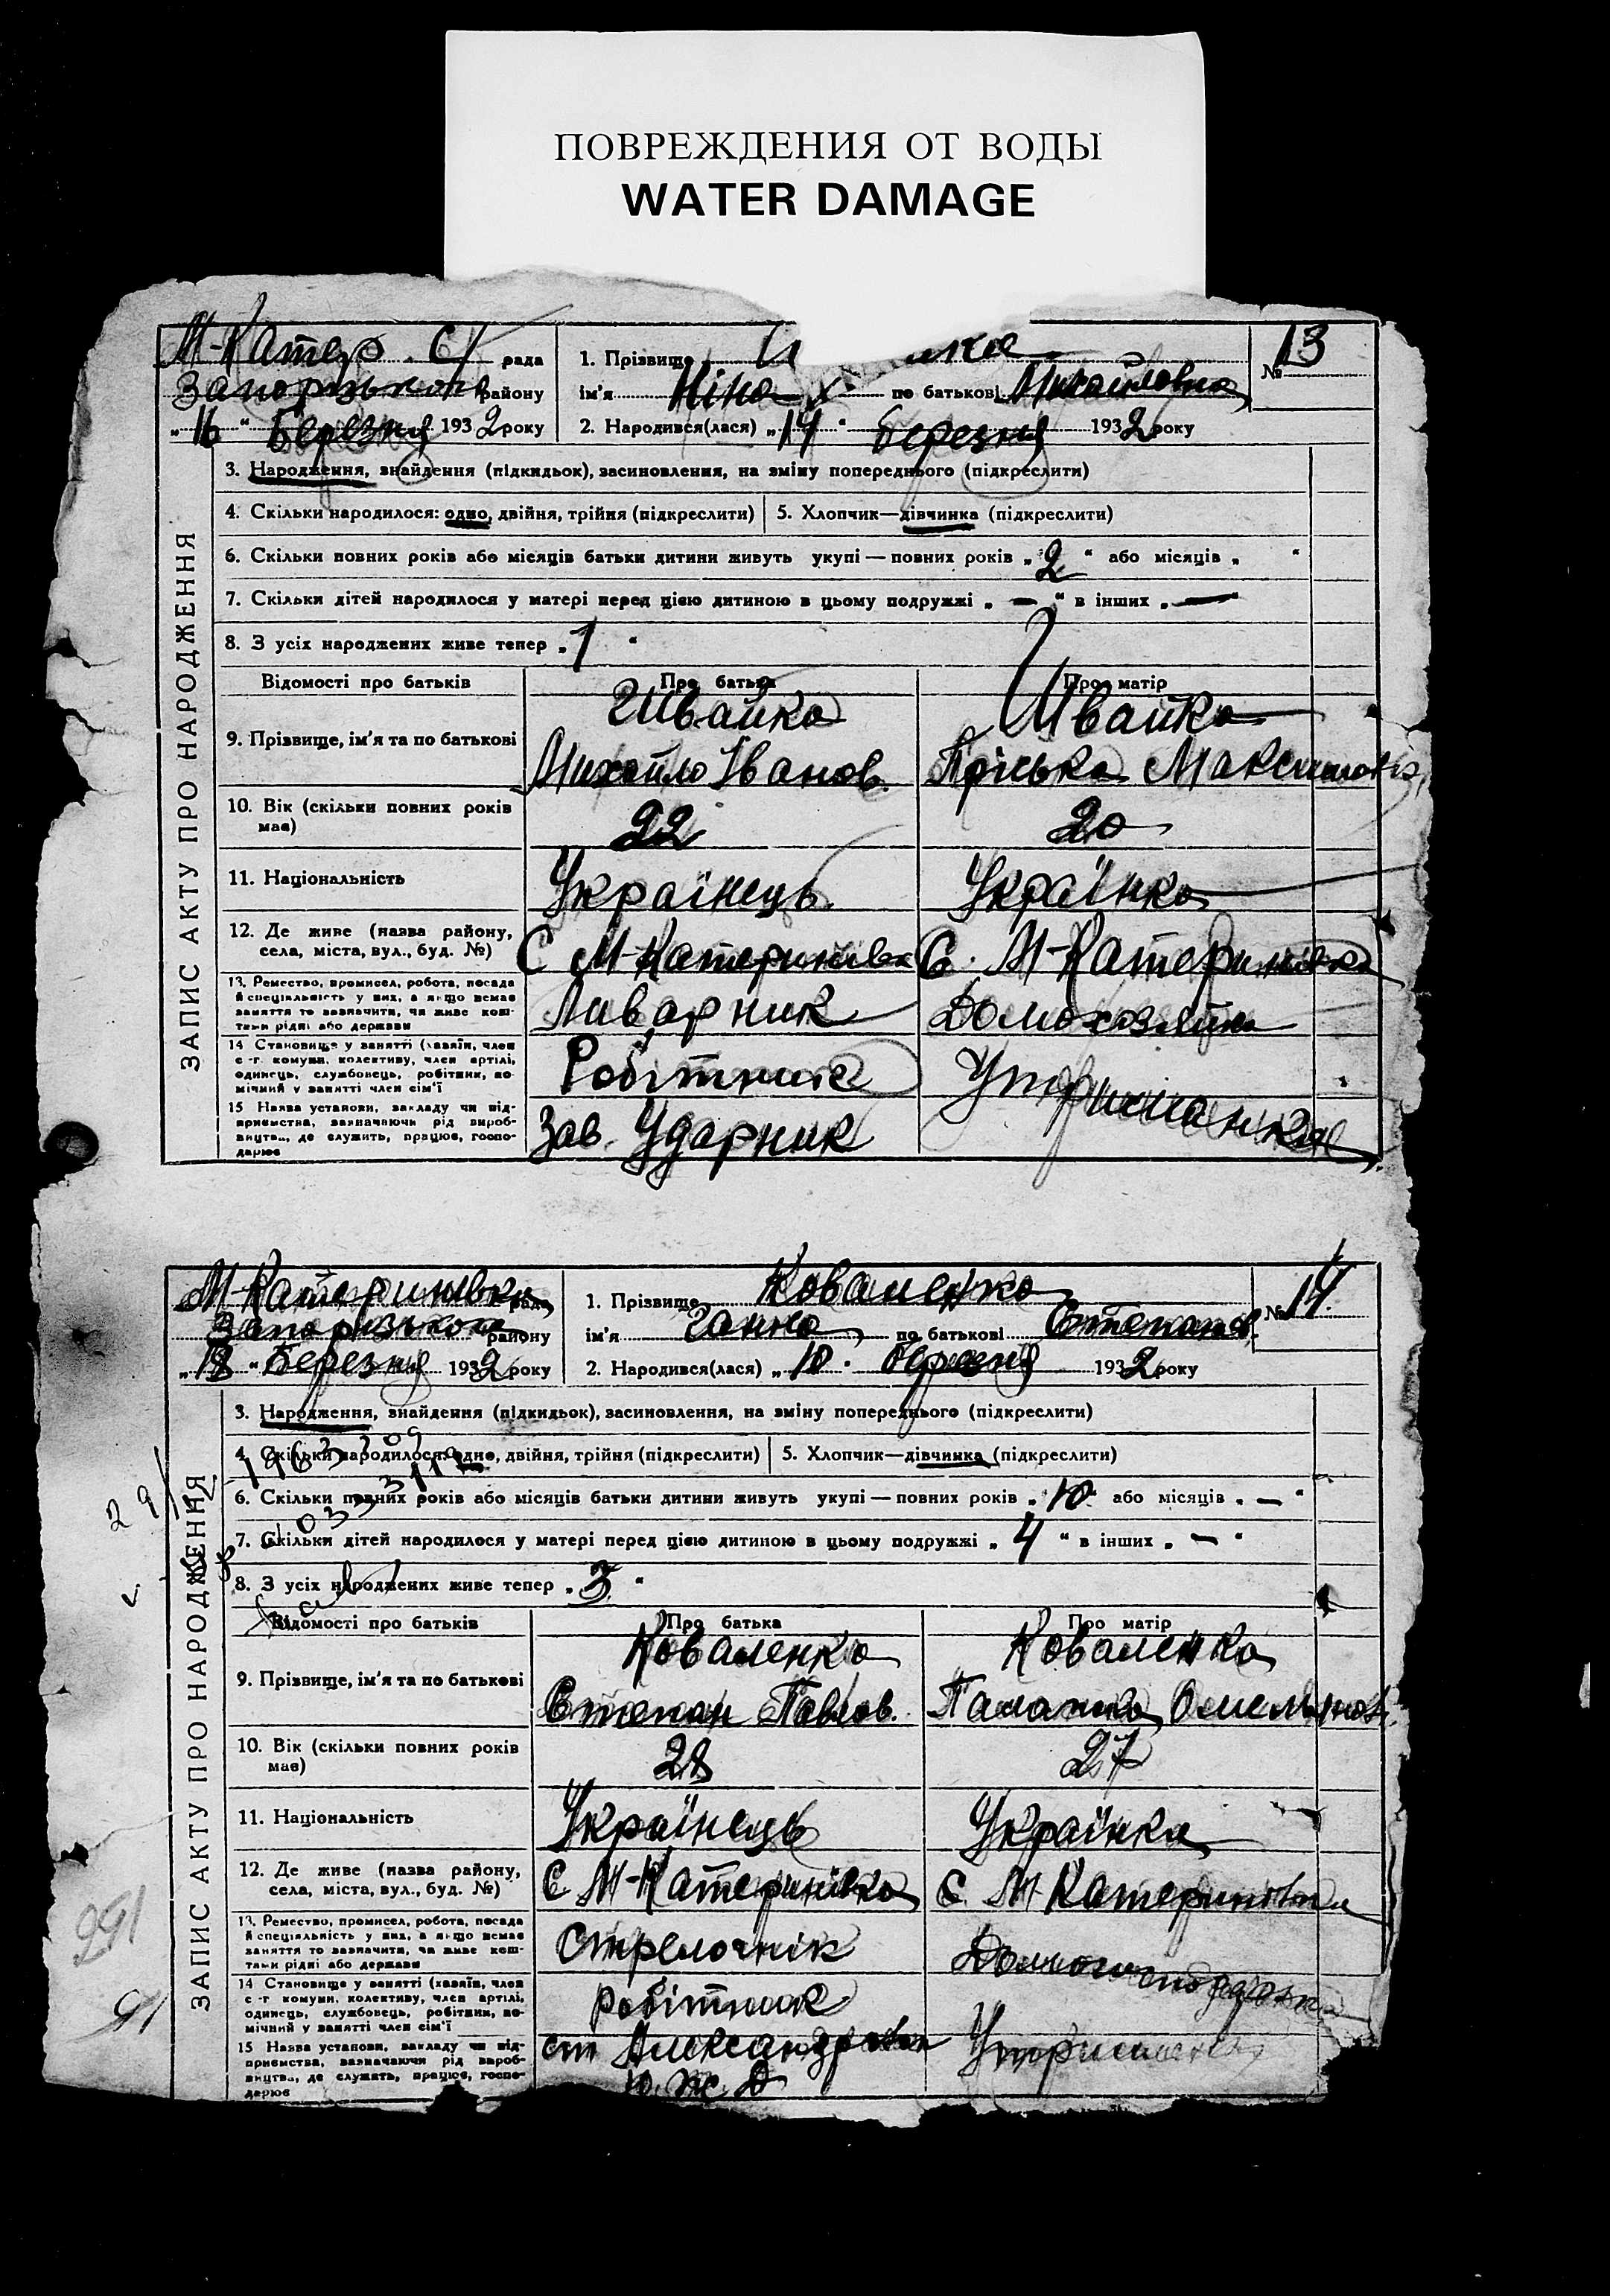 ПОВРЕЖДЕНИЯ ОТ ВОДЫ
WATER DAMAGE
М-Катер. С/ рада
Запорізького району
„16“ Березня 1932 року
1. Прізвище
ім'я Ніна по батькові Михайловна
2. Народився(лася) „14“ Березня 1932 року
№ 13
ЗАПИС АКТУ ПРО НАРОДЖЕННЯ
3. Народження, знайдення (підкидьок), засиновлення, на зміну попереднього (підкреслити)
4. Скільки народилося: одно, двійня, трійня (підкреслити) 5. Хлопчик—дівчинка (підкреслити)
6. Скільки повних років або місяців батьки дитини живуть укупі — повних років „2“ або місяців „ “
7. Скільки дітей народилося у матері перед цією дитиною в цьому подружжі „—“ в інших „—“
8. З усіх народжених живе тепер „1“
Відомості про батьків Про батька Про матір
Швайко Швайко
9. Прізвище, ім'я та по батькові
Михайло Іванов. Пріська Максимов
10. Вік (скільки повних років має) 22 20
11. Національність Українець Українка
12. Де живе (назва району, села, міста, вул., буд. №) С М-Катеринівка С. М-Катеринівка
13. Ремество, промисел, робота, посада й спеціяльність у них, а якщо немає заняття то зазначити, чи живе коштами рідні або держави Ливарник Домохозяйка
14 Становище у занятті (хазяїн, член с.-г. комуни, колективу, член артілі, одинець, службовець, робітник, помічний у занятті член сім'ї Робітник Утриманка
15 Назва установи, закладу чи підприємства, зазначаючи рід виробництва, де служить, працює, господарює Зав. Ударник
М-Катеринівка рада
Запорізького району
„18“ Березня 1932 року
1. Прізвище Коваленко
ім'я Ганна по батькові Степанов.
2. Народився(лася) „10“ березня 1932 року
№ 14.
ЗАПИС АКТУ ПРО НАРОДЖЕННЯ
3. Народження, знайдення (підкидьок), засиновлення, на зміну попереднього (підкреслити)
4. Скільки народилося: одно, двійня, трійня (підкреслити) 5. Хлопчик—дівчинка (підкреслити)
6. Скільки повних років або місяців батьки дитини живуть укупі — повних років „10“ або місяців „—“
7. Скільки дітей народилося у матері перед цією дитиною в цьому подружжі „4“ в інших „—“
8. З усіх народжених живе тепер „3“
Відомості про батьків Про батька Про матір
Коваленко Коваленко
9. Прізвище, ім'я та по батькові
Степан Павлов. Палажка Омелянов.
10. Вік (скільки повних років має) 28 27
11. Національність Українець Українка
12. Де живе (назва району, села, міста, вул., буд. №) С. М-Катеринівка С. М-Катеринівка
13. Ремество, промисел, робота, посада й спеціяльність у них, а якщо немає заняття то зазначити, чи живе коштами рідні або держави Стрелочнік
14 Становище у занятті (хазяїн, член с.-г. комуни, колективу, член артілі, одинець, службовець, робітник, помічний у занятті член сім'ї робітник Утриманка
15 Назва установи, закладу чи підприємства, зазначаючи рід виробництва, де служить, працює, господарює ст Александровка
Ю. Ж. Д
291
91